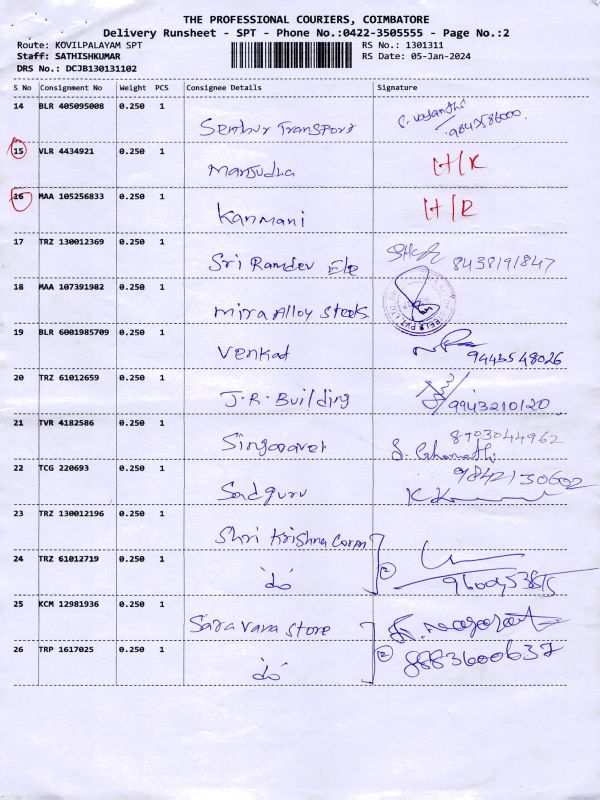 THE PROFESSIONAL COURIERS, COIMBATORE
Delivery Runsheet - SPT - Phone No.:0422-3505555 - Page No.:2
Route: KOVILPALAYAM SPT RS No.: 1301311
Staff: SATHISHKUMAR RS Date: 05-Jan-2024
DRS No.: DCJB130131102
S No Consignment No Weight PCS Consignee Details Signature
14 BLR 405095008 0.250 1 Transport
15 VLR 4434921 0.250 1 Manjudha H/R
16 MAA 105256833 0.250 1 Kanmani H/R
17 TRZ 130012369 0.250 1 Sri Ramdev Ele 8438191847
18 MAA 107391982 0.250 1 Mira Alloy Steels
19 BLR 6001985709 0.250 1 Venkat 9445548026
20 TRZ 61012659 0.250 1 J.R. Building 9943210120
21 TVR 4182586 0.250 1 Singaravel 8903044962
22 TCG 220693 0.250 1 Sadguru 9842130602
23 TRZ 130012196 0.250 1 Shri Krishna Corpn
24 TRZ 61012719 0.250 1 do 2
25 KCM 12981936 0.250 1 Saravana Store
26 TRP 1617025 0.250 1 do 2 8883600637